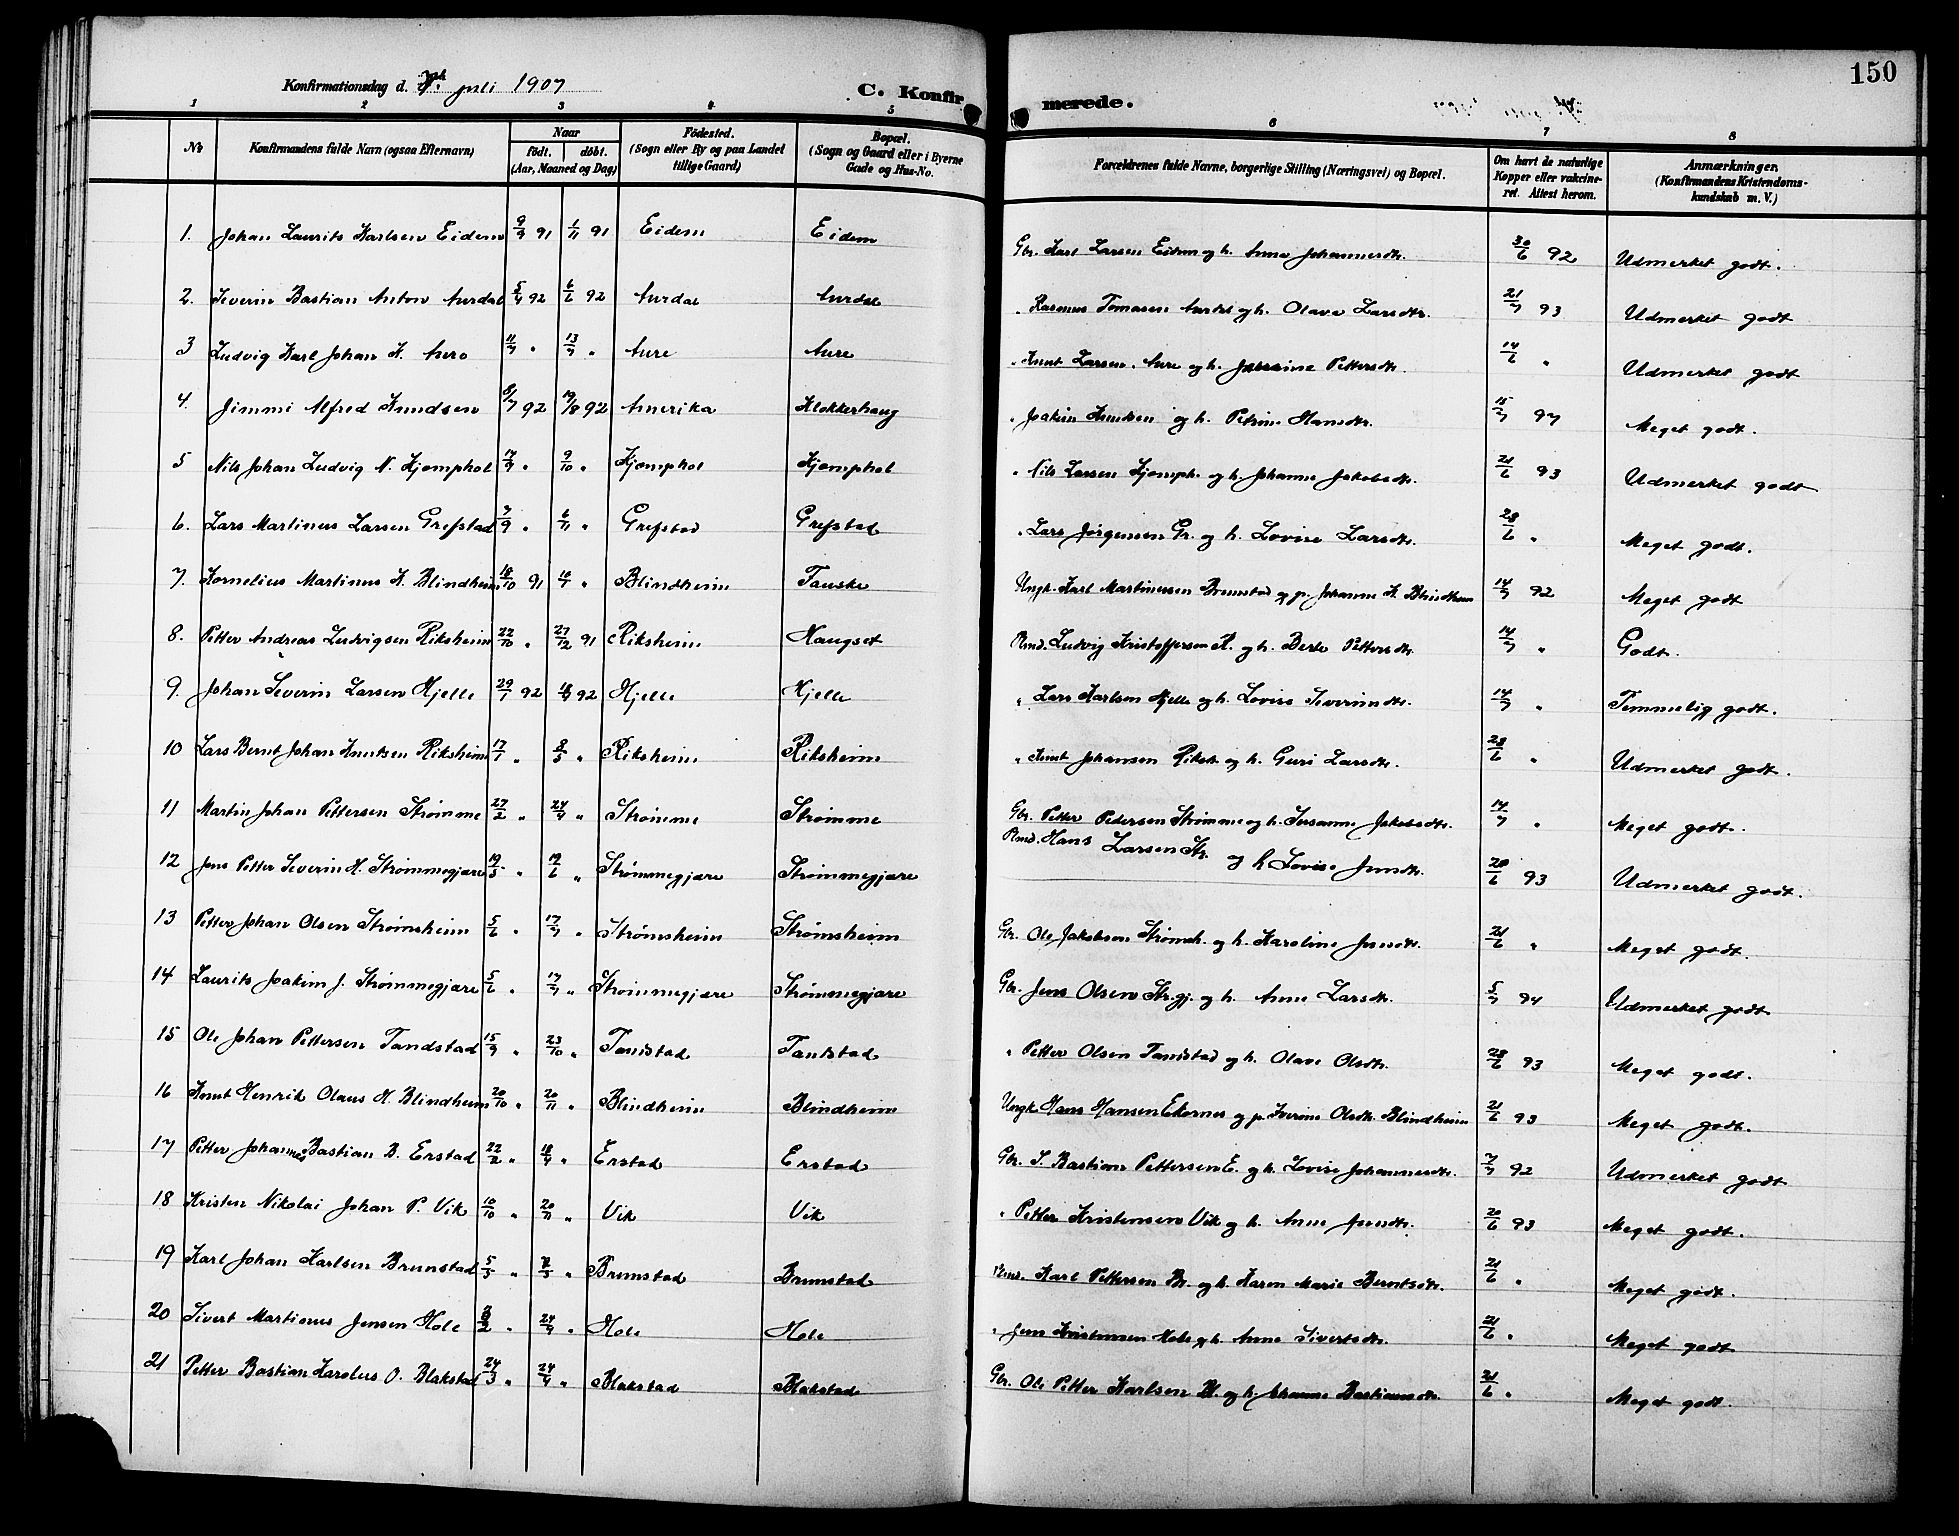 150
Konfirmationsdag d. 7de juli 1907
C. Konfirmerede.
1 2 3 4 5 6 7 8
No Konfirmandens fulde Navn (ogsaa Efternavn) Naar født. døbt. (Aar, Maaned og Dag) Fødested. (Sogn eller By og paa Landet tillige Gaard) Bopæl. (Sogn og Gaard eller i Byerne Gade og Hus-No. Forældrenes fulde Navne, borgerlige Stilling (Næringsvei) og Bopæl. Om havt de naturlige Kopper eller vakcineret. Attest herom. Anmærkninger. (Konfirmandens Kristendomskundskab m. V.)
1. Johan Laurits Karlsen Eidem 9/9 91 1/11 91 Eidem Eidem Gbr. Karl Larsen Eidem og h. Anne Johannesdtr. 30/6 92 Udmerket godt.
2. Severin Bastian Anton Aurdal 5/4 92 6/6 92 Aurdal Aurdal " Rasmus Tomasen Aurdal og h. Olave Larsdtr. 21/7 93 Udmerket godt
3 Ludvig Karl Johan K. Aure 11/7 " 13/7 " Aure Aure " Knut Larsen Aure og h. Pettersdtr. 14/6 " Udmerket godt
4. Jimmi Alfred Knudsen 8/7 92 19/8 92 Amerika Klokkerhaug " Joakim Knutsen og h. Petrine Hansdtr. 15/7 97 Meget godt.
5 Nils Johan Ludvig N. Kjemphol 14/9 " 9/10 " Kjemphol Kjemphol " Nils Larsen Kjemph. og h. Johanne Jakobsdtr. 21/6 93 Udmerket godt
6. Lars Martinus Larsen Grepstad 7/9 " 6/11 " Grepstad Grepstad " Lars Jørgensen Gr. og h. Lovise Larsdtr. 28/6 " Meget godt.
7. Kornelius Martinus K. Blindheim 18/10 91 " Blindheim Tauske Ungk. Karl Martinusen Brunstad og p. Johanne K. Blindheim 14/7 92 Meget godt
8. Petter Andreas Ludvigsen Riksheim 22/10 " 27/12 91 Riksheim Haugset Rmd. Ludvig Kristoffersen R. og h. Berte Pettersdtr. 14/7 " Godt.
9. Johan Severin Larsen Hjelle 29/1 92 92 Hjelle Hjelle " Lars Karlsen Hjelle og h. Lovise Severinsdtr. 14/7 " Temmelig godt.
10 Lars Bernt Johan Knutsen Riksheim 17/1 " 8/5 " Riksheim Riksheim " Knut Johansen Riksh. og h. Guri Larsdtr. 28/6 " Udmerket godt.
11 Martin Johan Pettersen Strømme 27/2 " 24/4 " Strømme Strømme Gbr. Petter Petersen Strømme og h. Susanne Jakobsdtr. 14/7 " Meget godt.
12 Jens Petter Severin H. Strømmegjære 19/5 " 19/6 " Strømmegjære Strømmegjære Rmd. Hans Larsen Str. og h Lovise Jensdtr. 20/6 93 Udmerket godt.
13 Petter Johan Olsen Strømsheim 5/6 " 17/7 " Strømsheim Strømsheim Gbr. Ole Jakobsen Strømsh. og h. Karoline Jensdtr. 21/6 " Meget godt.
14 Laurits Joakim J. Strømmegjære 5/6 " 17/7 " Strømmegjære Strømmegjære Gbr. Jens Olsen Str.gj. og h. Anne Larsdtr. 5/7 94 Udmerket godt
15 Ole Johan Pettersen Tandstad 15/9 " 23/10 " Tandstad Tandstad " Petter Olsen Tandstad og h. Olave Olsdtr. 28/6 93 Meget godt.
16 Knut Henrik Olaus H. Blindheim 20/10 " 20/11 " Blindheim Blindheim Ungk. Hans Hansen Ekornes og p. Iverine Olsdtr. Blindheim 21/6 93 Meget godt.
17 Petter Johannes Bastian B. Erstad 22/2 " 18/4 " Erstad Erstad Gbr. S. Bastian Pettersen E. og h. Lovise Johannesdtr. 7/7 92 Udmerket godt
18 Kristen Nikolai Johan P. Vik 10/10 " 20/11 " Vik Vik " Petter Kristensen Vik og h. Anne Jensdtr. 20/6 93 Meget godt.
19 Karl Johan Karlsen Brunstad 5/3 " " Brunstad Brunstad Rmd. Karl Pettersen Br. og h. Karen Marie Berntsdtr. 21/6 " Meget godt.
20 Sivert Martinus Jensen Hole " 24/4 " Hole Hole " Jens Kristensen Hole og h. Anne Sivertsdtr. 21/6 " Meget godt
21 Petter Bastian Karolus O. Blakstad 24/3 " 24/4 " Blakstad Blakstad Gbr. Ole Petter Karlsen Bl. og h. Johanne Bastiansdtr. 21/6 " Meget godt.